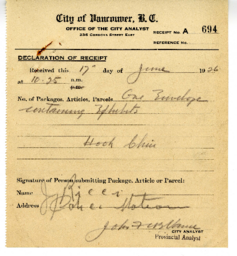 City of Vancouver, B.C.
OFFICE OF THE CITY ANALYST
RECEIPT No. A 694
REFERENCE No.
DECLARATION OF RECEIPT
Received this 17th day of June 1926
at 10-25 a.m.
No. of Packages, Articles, Parcels One Envelope
containing Exhibits
Hook Chin
Signature of Person submitting Package, Article or Parcel:
Name J Ricci
Address Police Station
CITY ANALYST
Provincial Analyst